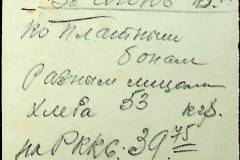 По платным
бонам
Разным лицам
хлеба 53 кгр.
на Р.ККБ. 39 75